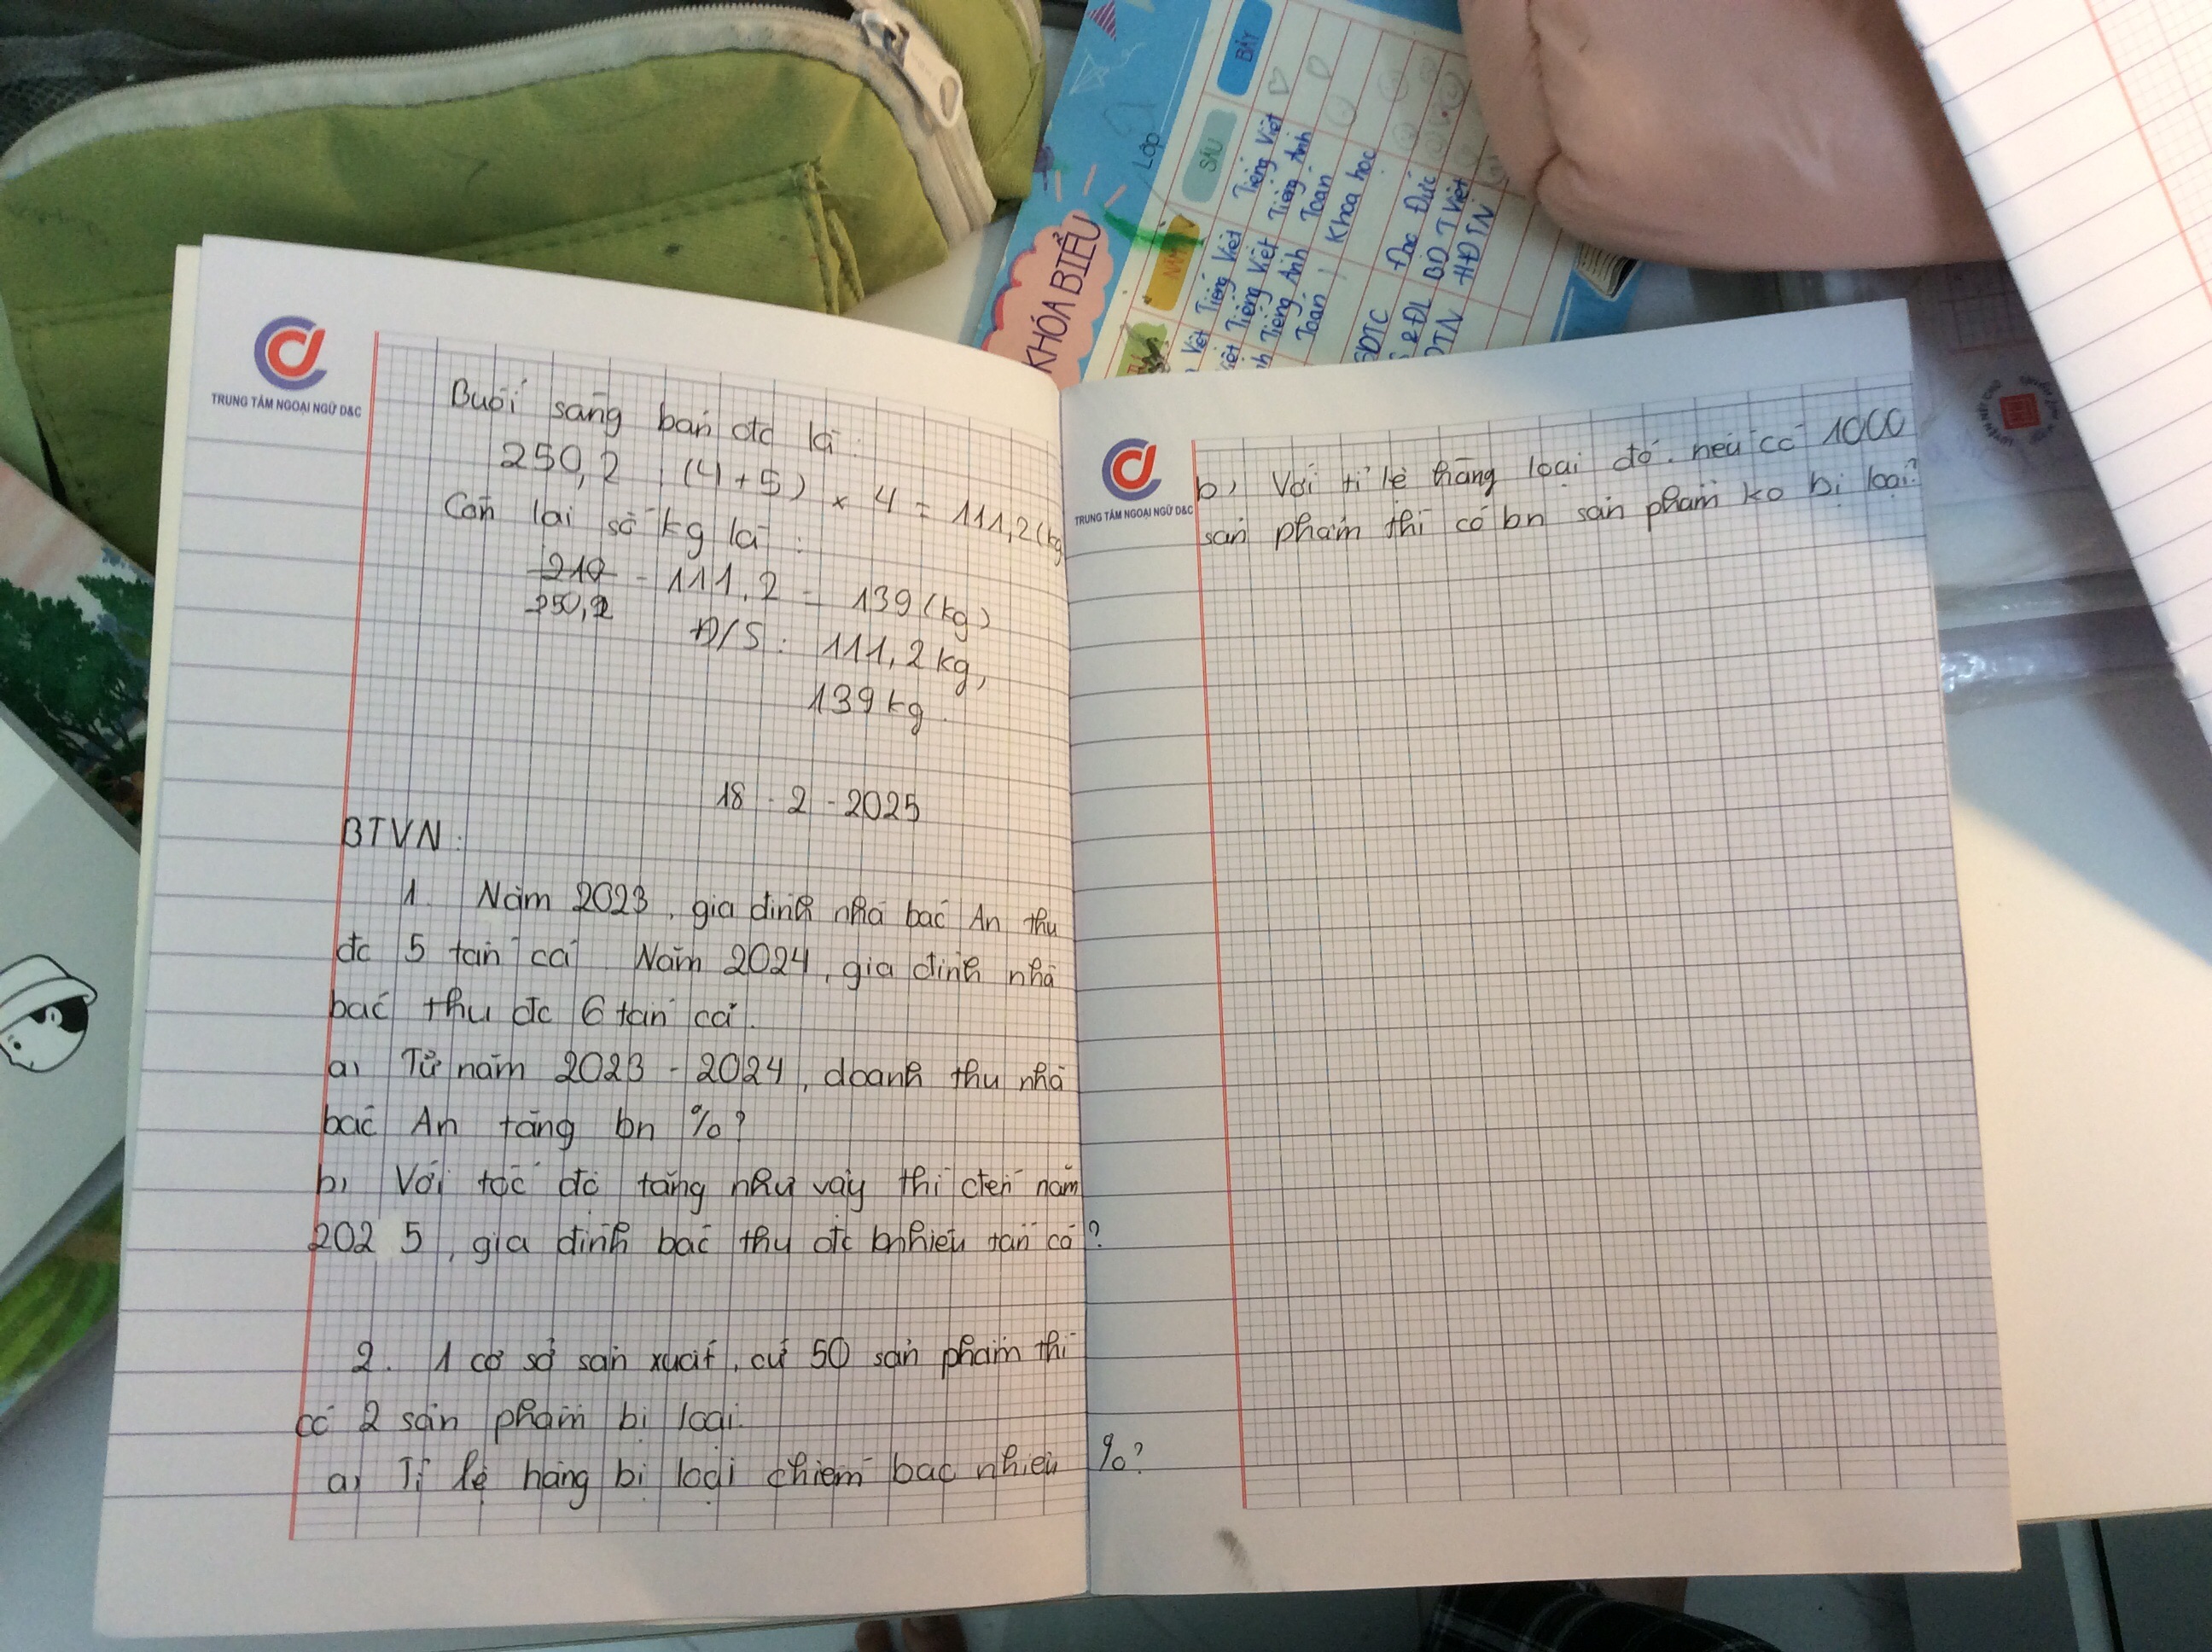 KHÓA BIỂU
Lớp
SÁU
BẢY
Tiếng Việt
Tiếng Việt
Tiếng Việt
Tiếng Anh
Tiếng Anh
Toán
Toán
Khoa học
SDTC
Đạo Đức
& ĐL
BD T Việt
DTN
HĐTN
TRUNG TÂM NGOẠI NGỮ D&C
Buổi sáng bán đc là:
250,2 : (4+5) × 4 = 111,2 (kg
Còn lại số kg là:
210 - 111,2 = 139 (kg)
250,2
Đ/S: 111,2 kg,
139 kg.
18 - 2 - 2025
BTVN:
1. Năm 2023, gia đình nhà bác An thu
đc 5 tấn cá. Năm 2024, gia đình nhà
bác thu đc 6 tấn cá.
a) Từ năm 2023 - 2024, doanh thu nhà
bác An tăng bn %?
b) Với tốc độ tăng như vậy thì đến năm
2025, gia đình bác thu đc bnhiêu tấn cá?
2. 1 cơ sở sản xuất, cứ 50 sản phẩm thì
có 2 sản phẩm bị loại.
a) Tỉ lệ hàng bị loại chiếm bao nhiêu %?
TRUNG TÂM NGOẠI NGỮ D&C
b) Với tỉ lệ hàng loại đó. nếu có 1000
sản phẩm thì có bn sản phẩm ko bị loại?